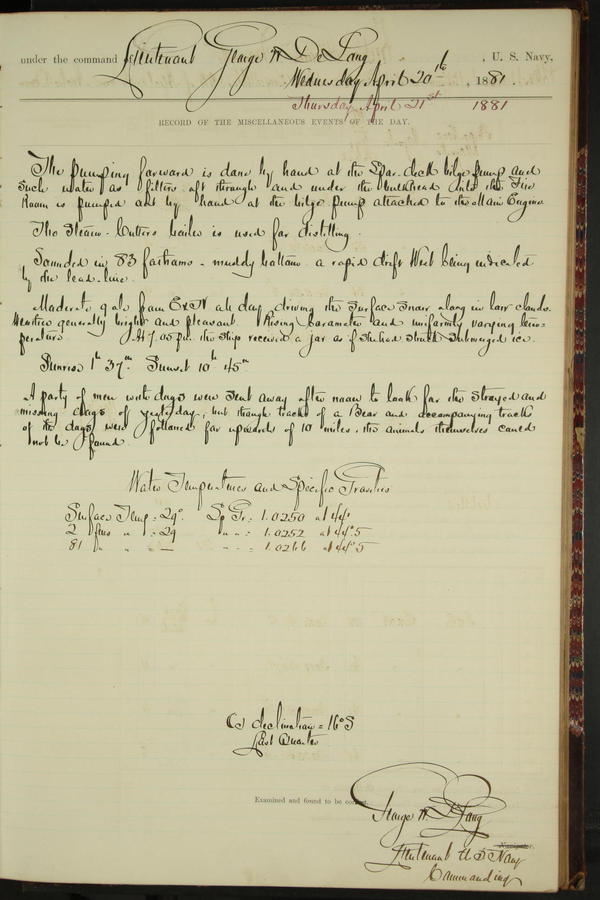 under the command of Lieutenant George W. De Long, U. S. Navy,
Wednesday April 20th, 1881.
Thursday April 21st 1881
RECORD OF THE MISCELLANEOUS EVENTS OF THE DAY.
The pumping forward is done by hand at the Spar-deck bilge pump and
such water as filters aft through and under the bulkhead into the Fire
Room is pumped out by hand at the bilge pump attached to the Main Engine
The Steam-Cutters boiler is used for distilling.
Sounded in 83 fathoms - muddy bottom. a rapid drift West being indicated
by the lead-line.
Moderate gale from ExN all day, driving the surface snow along in low clouds.
Weather generally bright and pleasant. Rising barometer and uniformly varying tem-
perature. At 7.05 p.m. the ship received a jar as if she had struck submerged ice.
Sunrise 1h 37m. Sunset 10h 45m
A party of men with dogs were sent away after noon to look for the strayed and
missing dogs of yesterday, but though tracks of a Bear and accompanying tracks
of the dogs were followed for upwards of 10 miles, the animals themselves could
not be found.
Water Temperatures and Specific Gravities
Surface Temp = 29°. Sp Gr = 1.0250 at 44°
2 fms " " = 29 " " = 1.0252 at 44°.5
81 " " " — " " = 1.0266 at 44°.5
declination = 16° S
Last Quarter
Examined and found to be correct.
George W. De Long
Navigator.
Lieutenant U S Navy
Commanding